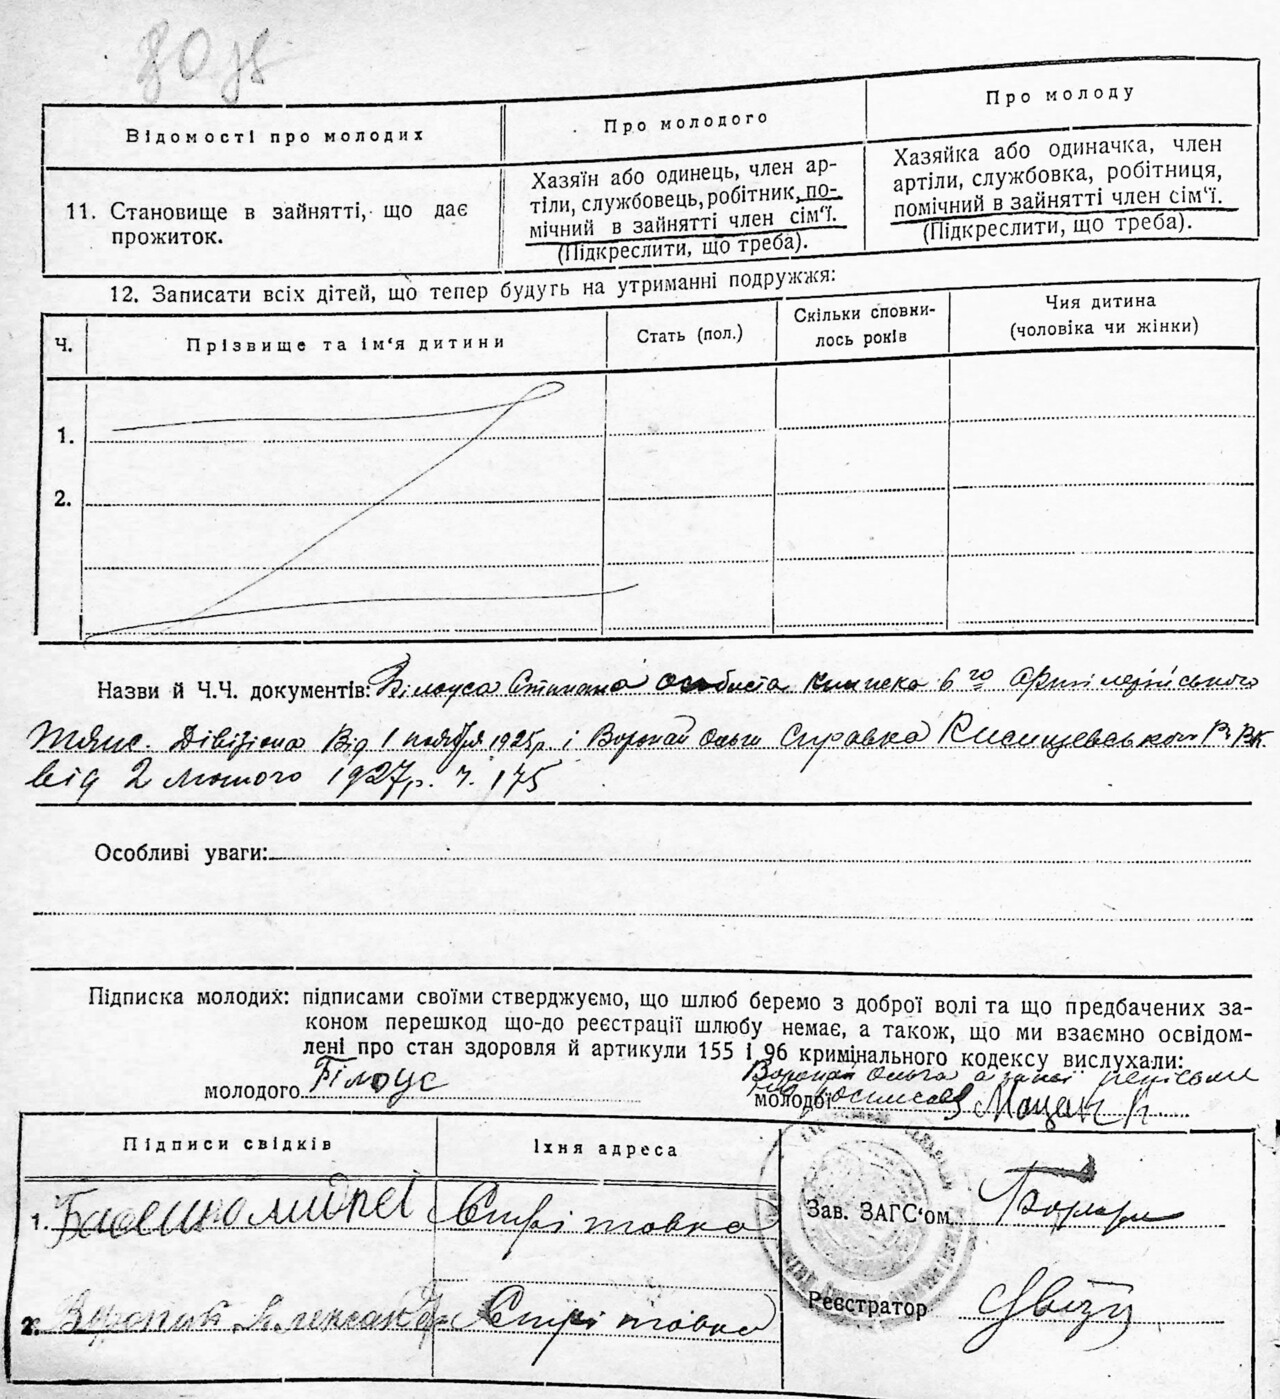 80
Відомості про молодих
Про молодого
Про молоду
11. Становище в зайнятті, що дає
прожиток.
Хазяїн або одинець, член ар-
тілі, службовець, робітник, по-
мічний в зайнятті член сім'ї.
(Підкреслити, що треба).
Хазяйка або одиначка, член
артіли, службовка, робітниця,
помічний в зайнятті член сім'ї.
(Підкреслити, що треба).
12. Записати всіх дітей, що тепер будуть на утриманні подружжя:
Ч.
Прізвище та ім'я дитини
Стать (пол.)
Скільки сповни-
лось років
Чия дитина
(чоловіка чи жінки)
1.
2.
Назви й Ч.Ч. документів: Білоуса Степана особиста книжка 6го Артілерійського
Дівізіона Від 1 ноября 1925р. і Воропай Ольги Справка
від 2 Лютого 1927р. ч. 175
Особливі уваги:
Підписка молодих: підписами своїми стверджуємо, що шлюб беремо з доброї волі та що предбачених за-
коном перешкод що-до реєстрації шлюбу немає, а також, що ми взаємно освідом-
лені про стан здоровля й артикули 155 і 96 кримінального кодексу вислухали:
молодого Білоус
Воропай Ольга а за неї
молодої
Підписи свідків
Їхня адреса
1.
Стрітовка
Зав. ЗАГС'ом
2. Воропай Александр
Стрітовка
Реєстратор